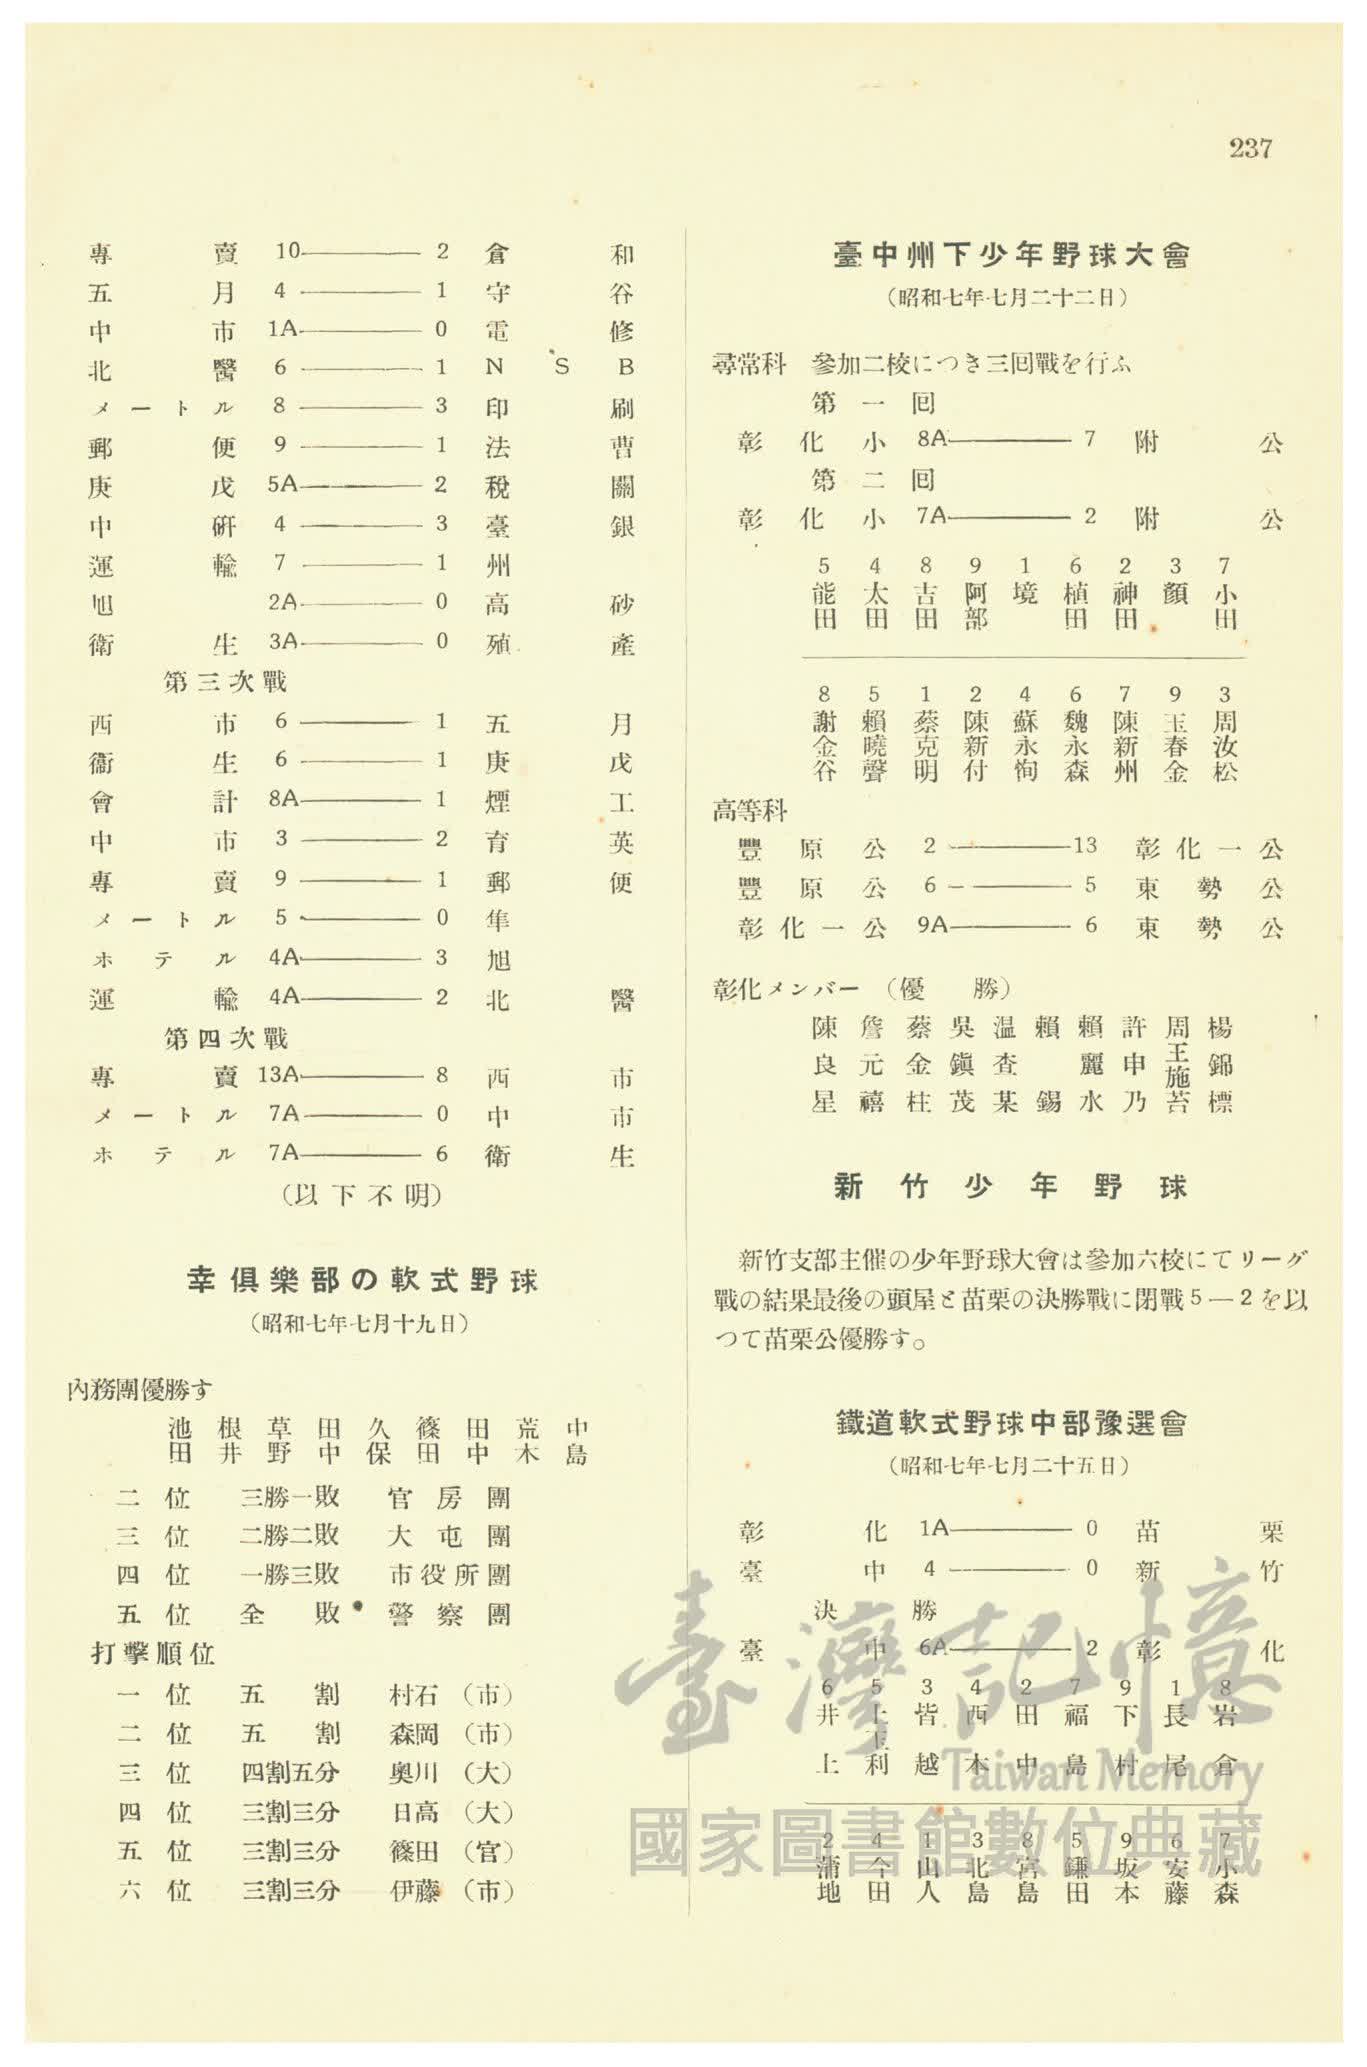 237
專賣 10———2 倉和
五月 4———1 守谷
中市 1A———0 電修
北醫 6———1 NSB
メートル 8———3 印刷
郵便 9———1 法曹
庚戊 5A———2 稅關
中硏 4———3 臺銀
運輸 7———1 州
旭 2A———0 高砂
衛生 3A———0 殖產
第三次戰
西市 6———1 五月
衞生 6———1 庚戊
會計 8A———1 煙工
中市 3———2 育英
專賣 9———1 郵便
メートル 5———0 隼
ホテル 4A———3 旭
運輸 4A———2 北醫
第四次戰
專賣 13A———8 西市
メートル 7A———0 中市
ホテル 7A———6 衛生
(以下不明)
幸俱樂部の軟式野球
(昭和七年七月十九日)
內務團優勝す
池田 根井 草野 田中 久保 篠田 田中 荒木 中島
二位 三勝一敗 官房團
三位 二勝二敗 大屯團
四位 一勝三敗 市役所團
五位 全敗 警察團
打擊順位
一位 五割 村石 (市)
二位 五割 森岡 (市)
三位 四割五分 奧川 (大)
四位 三割三分 日高 (大)
五位 三割三分 篠田 (官)
六位 三割三分 伊藤 (市)
臺中州下少年野球大會
(昭和七年七月二十二日)
尋常科 參加二校につき三回戰を行ふ
第一回
彰化小 8A———7 附公
第二回
彰化小 7A———2 附公
5 4 8 9 1 6 2 3 7
能田 太田 吉田 阿部 境 植田 神田 顏 小田
8 5 1 2 4 6 7 9 3
謝金谷 賴曉聲 蔡克明 陳新付 蘇永恂 魏永森 陳新州 玉春金 周汝松
高等科
豐原公 2———13 彰化一公
豐原公 6———5 東勢公
彰化一公 9A———6 東勢公
彰化メンバー (優勝)
陳良星 詹元禧 蔡金柱 吳鎭茂 温查某 賴錫 賴麗水 許申乃 周王施苔 楊錦標
新竹少年野球
新竹支部主催の少年野球大會は參加六校にてリーグ
戰の結果最後の頭屋と苗栗の決勝戰に閉戰5—2を以
つて苗栗公優勝す。
鐵道軟式野球中部豫選會
(昭和七年七月二十五日)
彰化 1A———0 苗栗
臺中 4———0 新竹
決勝
臺中 6A———2 彰化
6 5 3 4 2 7 9 1 8
井上 上王利 皆越 西木 田中 福島 下村 長尾 岩倉
2 4 1 3 8 5 9 6 7
蒲地 今田 山人 北島 宮島 鎌田 坂本 安藤 小森
臺灣記憶
Taiwan Memory
國家圖書館數位典藏